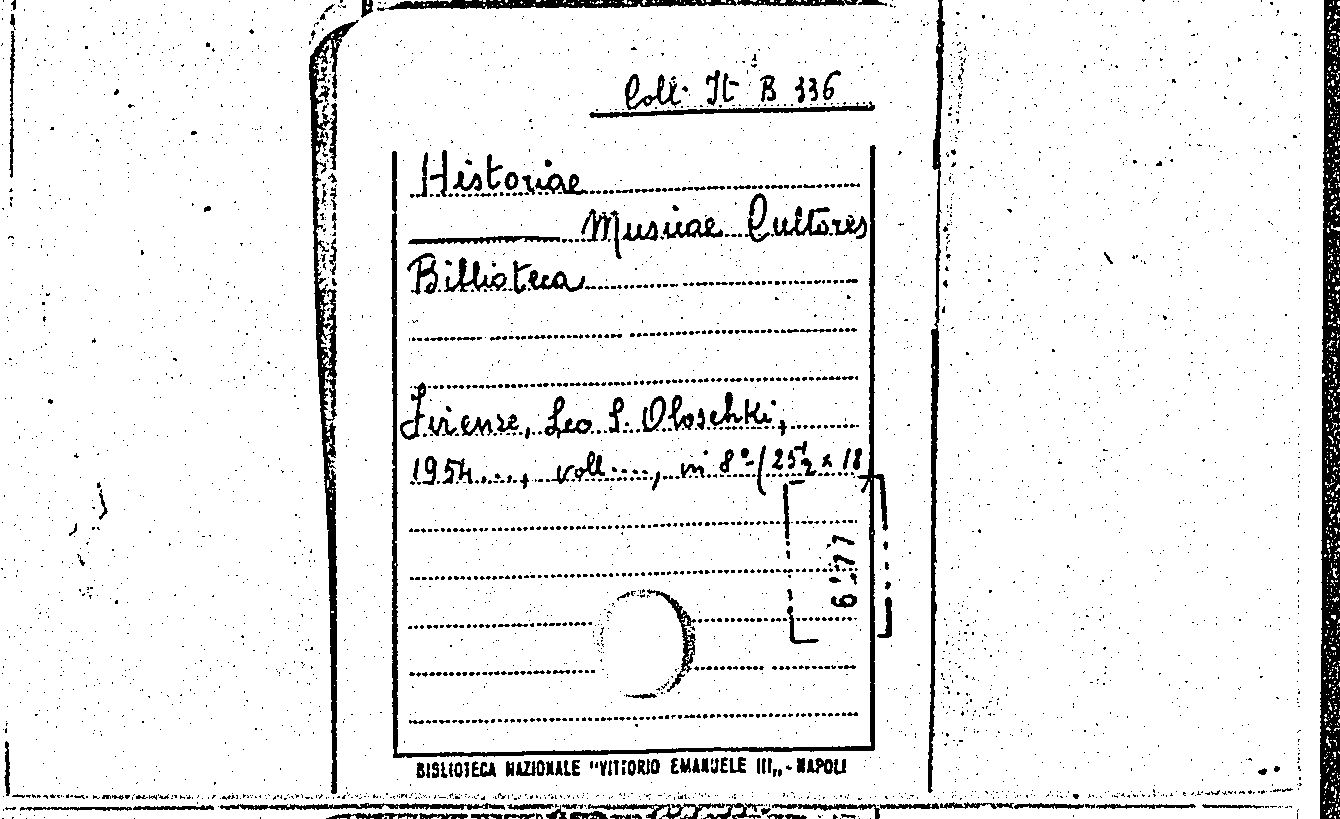 Coll. It B 336
Historiae
Musicae Cultores
Biblioteca
Firenze, Leo S. Oloschki,
1954..., voll...., in 8°-(25½ x 18
6277
BIBLIOTECA NAZIONALE "VITTORIO EMANUELE III„ - NAPOLI